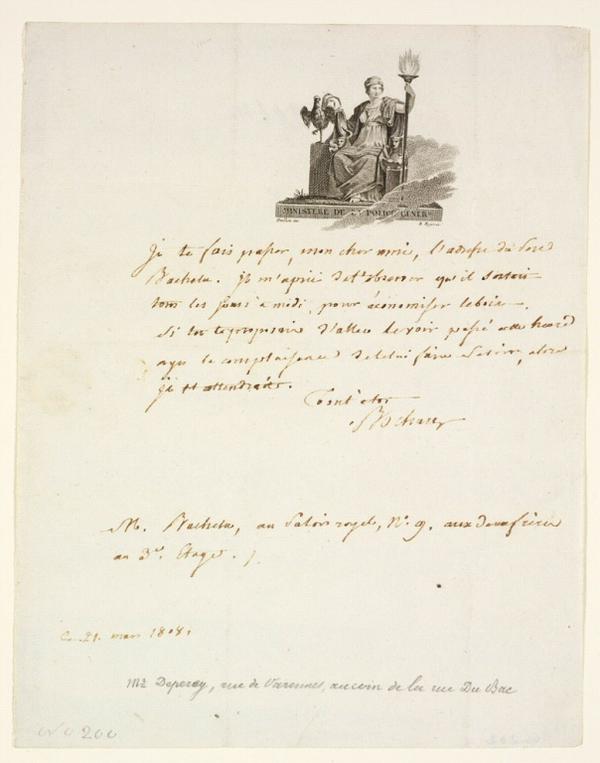 MINISTERE DE LA POLICE GENER
Je te fais passer, mon cher ami, l'adresse de
Bachela. Il m'a prié de t'observer qu'il sortait
tous les jours à midi, pour économiser le bois.
Si tu te proposais d'aller le voir passé cette heure
ayes la complaisance de le lui faire savoir, alors
il t'attendrait.
Tout à toi
M. Bachela, au Palais royal, No. 9, aux deux frères
au 3e. Etage.
Ce 21. mars 1808.
Mr. Deperey, rue de Varennes, au coin de la rue Du Bac
200